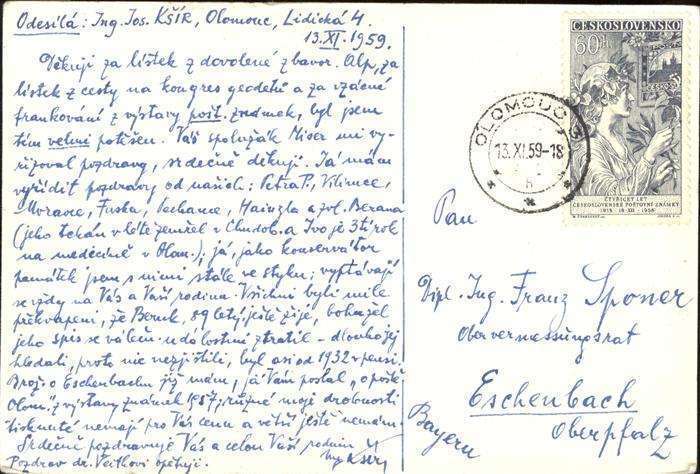 Odesílá: Ing. Jos. KŠÍR, Olomouc, Lidická 4.
13.XI.1959.
Děkuji za lístek z dovolené z bavor. Alp, za
lístek z cesty na kongres geodetů a za vzácné
frankování z výstavy pošt. známek, byl jsem
tím velmi potěšen. Váš spolužák Miser mi vy-
řizoval pozdravy, srdečně děkuji. Já mám
vyřídit pozdravy od našich: Petra P., Vilímce,
Moravce, Fuska, Pechance, Hainzla a zvl. Berana
(jeho tchán v létě zemřel v Chudob. a Ivo je 3tí rok
na medicině v Olom.); já, jako konservátor
památek jsem s nimi stále ve styku; vyptávají
se vždy na Vás a Vaši rodinu. Všichni byli mile
překvapeni, že Beruk, 89 letý ještě žije, bohužel
jeho spis se válečn. událostmi ztratil - dlouho jej
hledali, proto nic nezjistili, byl asi od 1932 v pensi.
Brož. o Eschenbachu již mám, já Vám poslal "o poště
Olom." z výstavy známek 1957; různé moje drobnosti
tisknuté nemají pro Vás cenu a větší ještě nemám.
Srdečně pozdravuje Vás a celou Vaši rodinu
Pozdrav dr. Veitkovi opětuji.
ČESKOSLOVENSKO
60 h
ČTYŘICET LET
ČESKOSLOVENSKÉ POŠTOVNÍ ZNÁMKY
1918 18 XII 1958
OLOMOUC 3
13.XI.59-18
h
Pan
Dipl. Ing. Franz Sponer
Obervermessungsrat
Eschenbach
Oberpfalz
Bayern